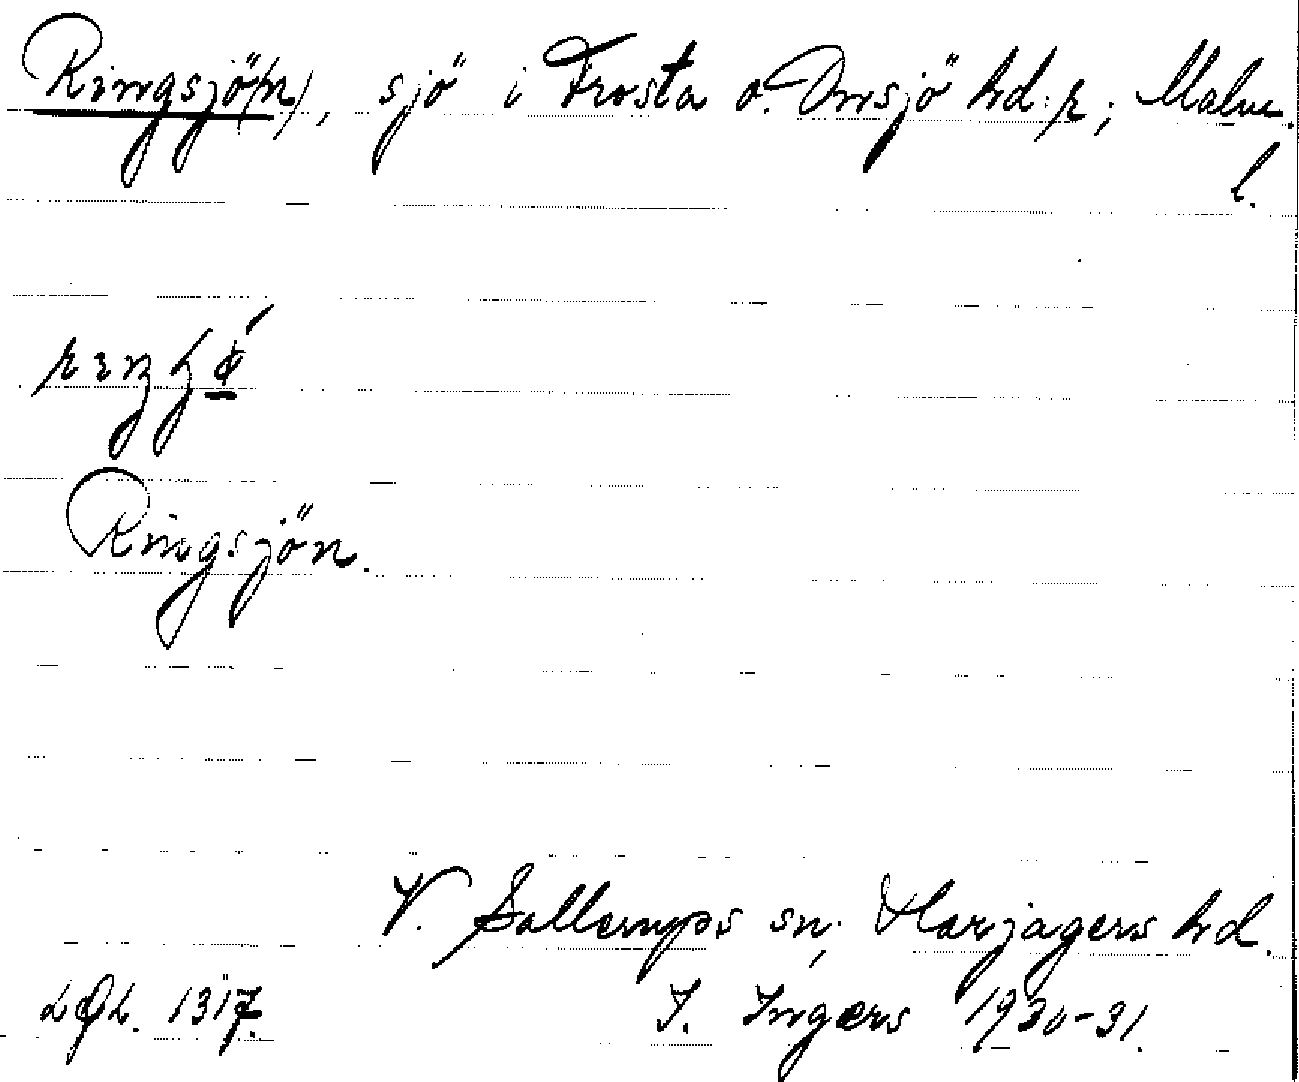 Ringsjö(n), sjö i Frosta o. Onsjö hd:r; Malm.
l.
Ringsjön.
V. Sallerups sn; Harjagers hd.
LAL. 1317. I. Ingers 1930-31.